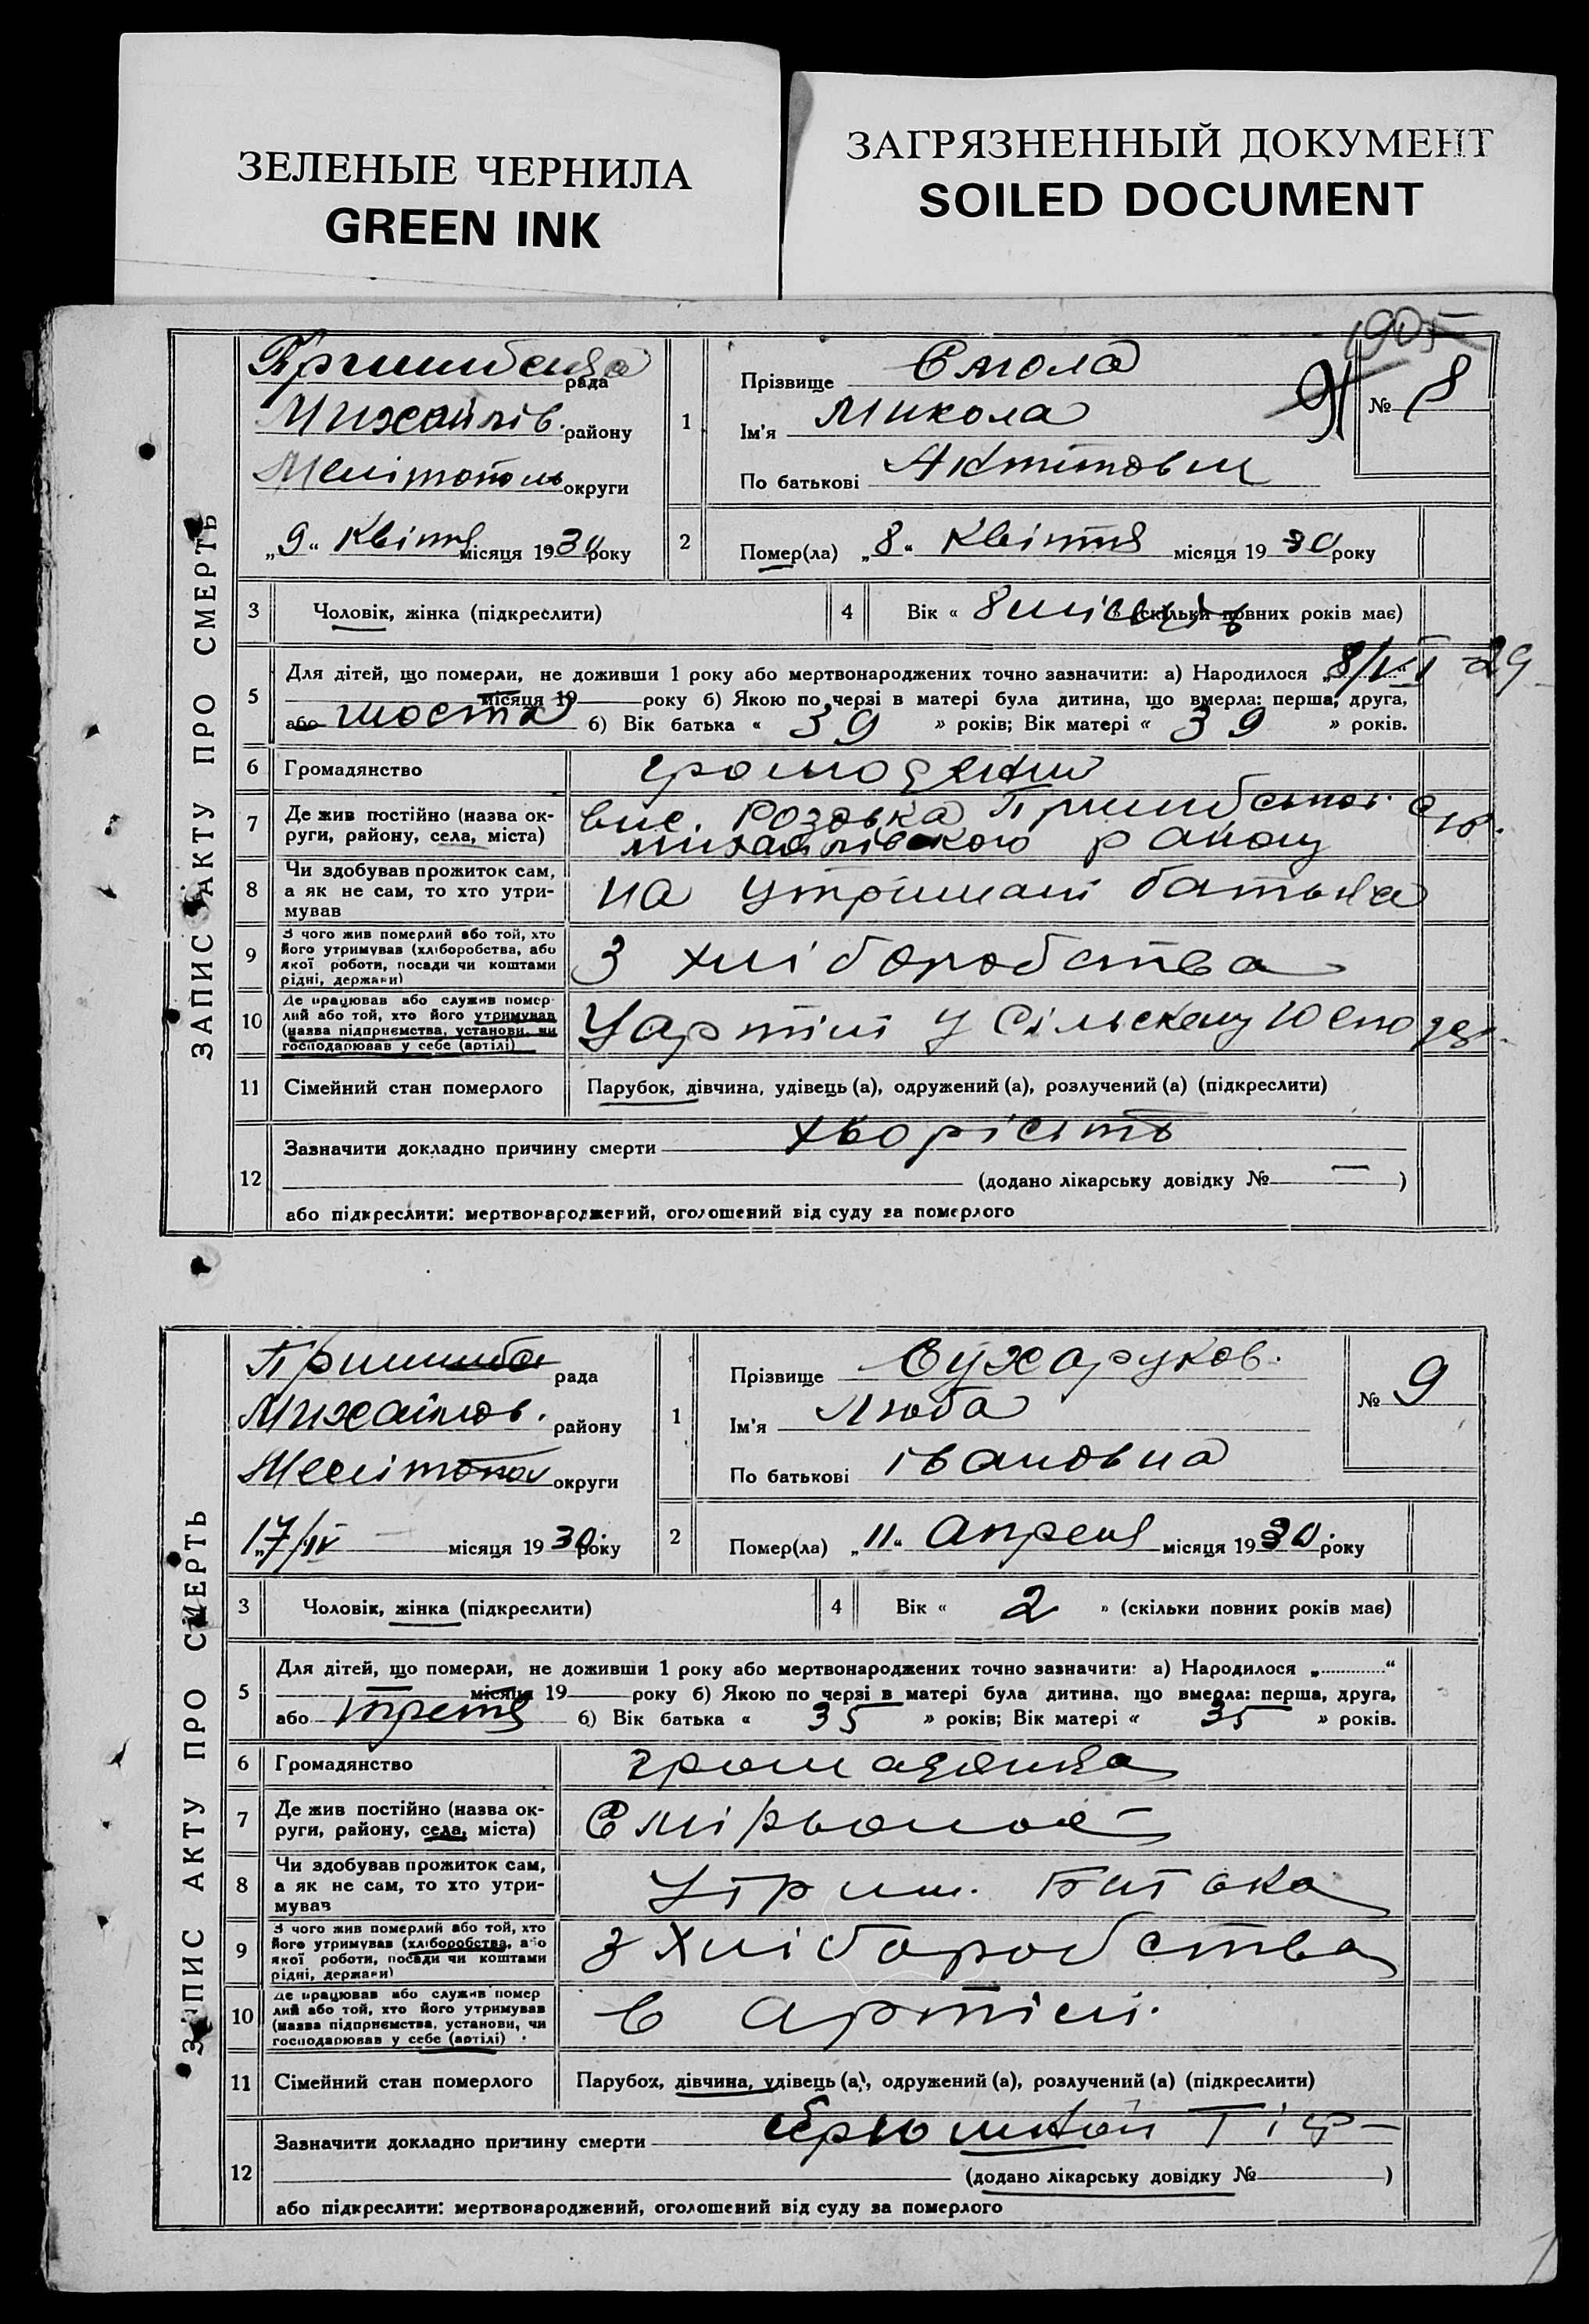 ЗЕЛЕНЫЕ ЧЕРНИЛА
GREEN INK
ЗАГРЯЗНЕННЫЙ ДОКУМЕНТ
SOILED DOCUMENT
905
ЗАПИС АКТУ ПРО СМЕРТЬ
рада
Михайлів. району
Мелітополь округи
„9“ Квітня місяця 1930 року
1
Прізвище Смола
Ім'я Микола
По батькові
91
№ 8
2
Помер(ла) „8“ Квітня місяця 1930 року
3
Чоловік, жінка (підкреслити)
4
Вік « 8 місяців » (скільки повних років має)
5
Для дітей, що померли, не доживши 1 року або мертвонароджених точно зазначити: а) Народилося „8/VIII 29
місяця 19 року б) Якою по черзі в матері була дитина, що вмерла: перша, друга,
або шоста б) Вік батька « 39 » років; Вік матері « 39 » років.
6
Громадянство
7
Де жив постійно (назва ок-
руги, району, села, міста)
вис. Роздовка
Михайлівского району
8
Чи здобував прожиток сам,
а як не сам, то хто утри-
мував
на утримані батька
9
З чого жив померлий або той, хто
його утримував (хліборобства, або
якої роботи, посади чи коштами
рідні, держави)
З хліборобства
10
Де працював або служив помер-
лий або той, хто його утримував
(назва підприємства, установи, чи
господарював у себе (артілі)
У артілі у Сільскему
11
Сімейний стан померлого
Парубок, дівчина, удівець (а), одружений (а), розлучений (а) (підкреслити)
12
Зазначити докладно причину смерти хворість
(додано лікарську довідку № — )
або підкреслити: мертвонароджений, оголошений від суду за померлого
ЗАПИС АКТУ ПРО СМЕРТЬ
Пришиб рада
Михайлов. району
Мелітопол округи
17/IV місяця 1930 року
1
Прізвище Сухаруков.
Ім'я Люба
По батькові івановна
№ 9
2
Помер(ла) „11“ Апреля місяця 1930 року
3
Чоловік, жінка (підкреслити)
4
Вік « 2 » (скільки повних років має)
5
Для дітей, що померли, не доживши 1 року або мертвонароджених точно зазначити: а) Народилося „ “
місяця 19 року б) Якою по черзі в матері була дитина, що вмерла: перша, друга,
або третя б) Вік батька « 35 » років; Вік матері « 35 » років.
6
Громадянство
громадянка
7
Де жив постійно (назва ок-
руги, району, села, міста)
8
Чи здобував прожиток сам,
а як не сам, то хто утри-
мував
Утрим. Батька
9
З чого жив померлий або той, хто
його утримував (хліборобства, або
якої роботи, посади чи коштами
рідні, держави)
З Хліборобства
10
Де працював або служив помер
лий або той, хто його утримував
(назва підприємства, установи, чи
господарював у себе (артілі)
в артілі.
11
Сімейний стан померлого
Парубок, дівчина, удівець (а), одружений (а), розлучений (а) (підкреслити)
12
Зазначити докладно причину смерти брюшной Тіф
(додано лікарську довідку № )
або підкреслити: мертвонароджений, оголошений від суду за померлого